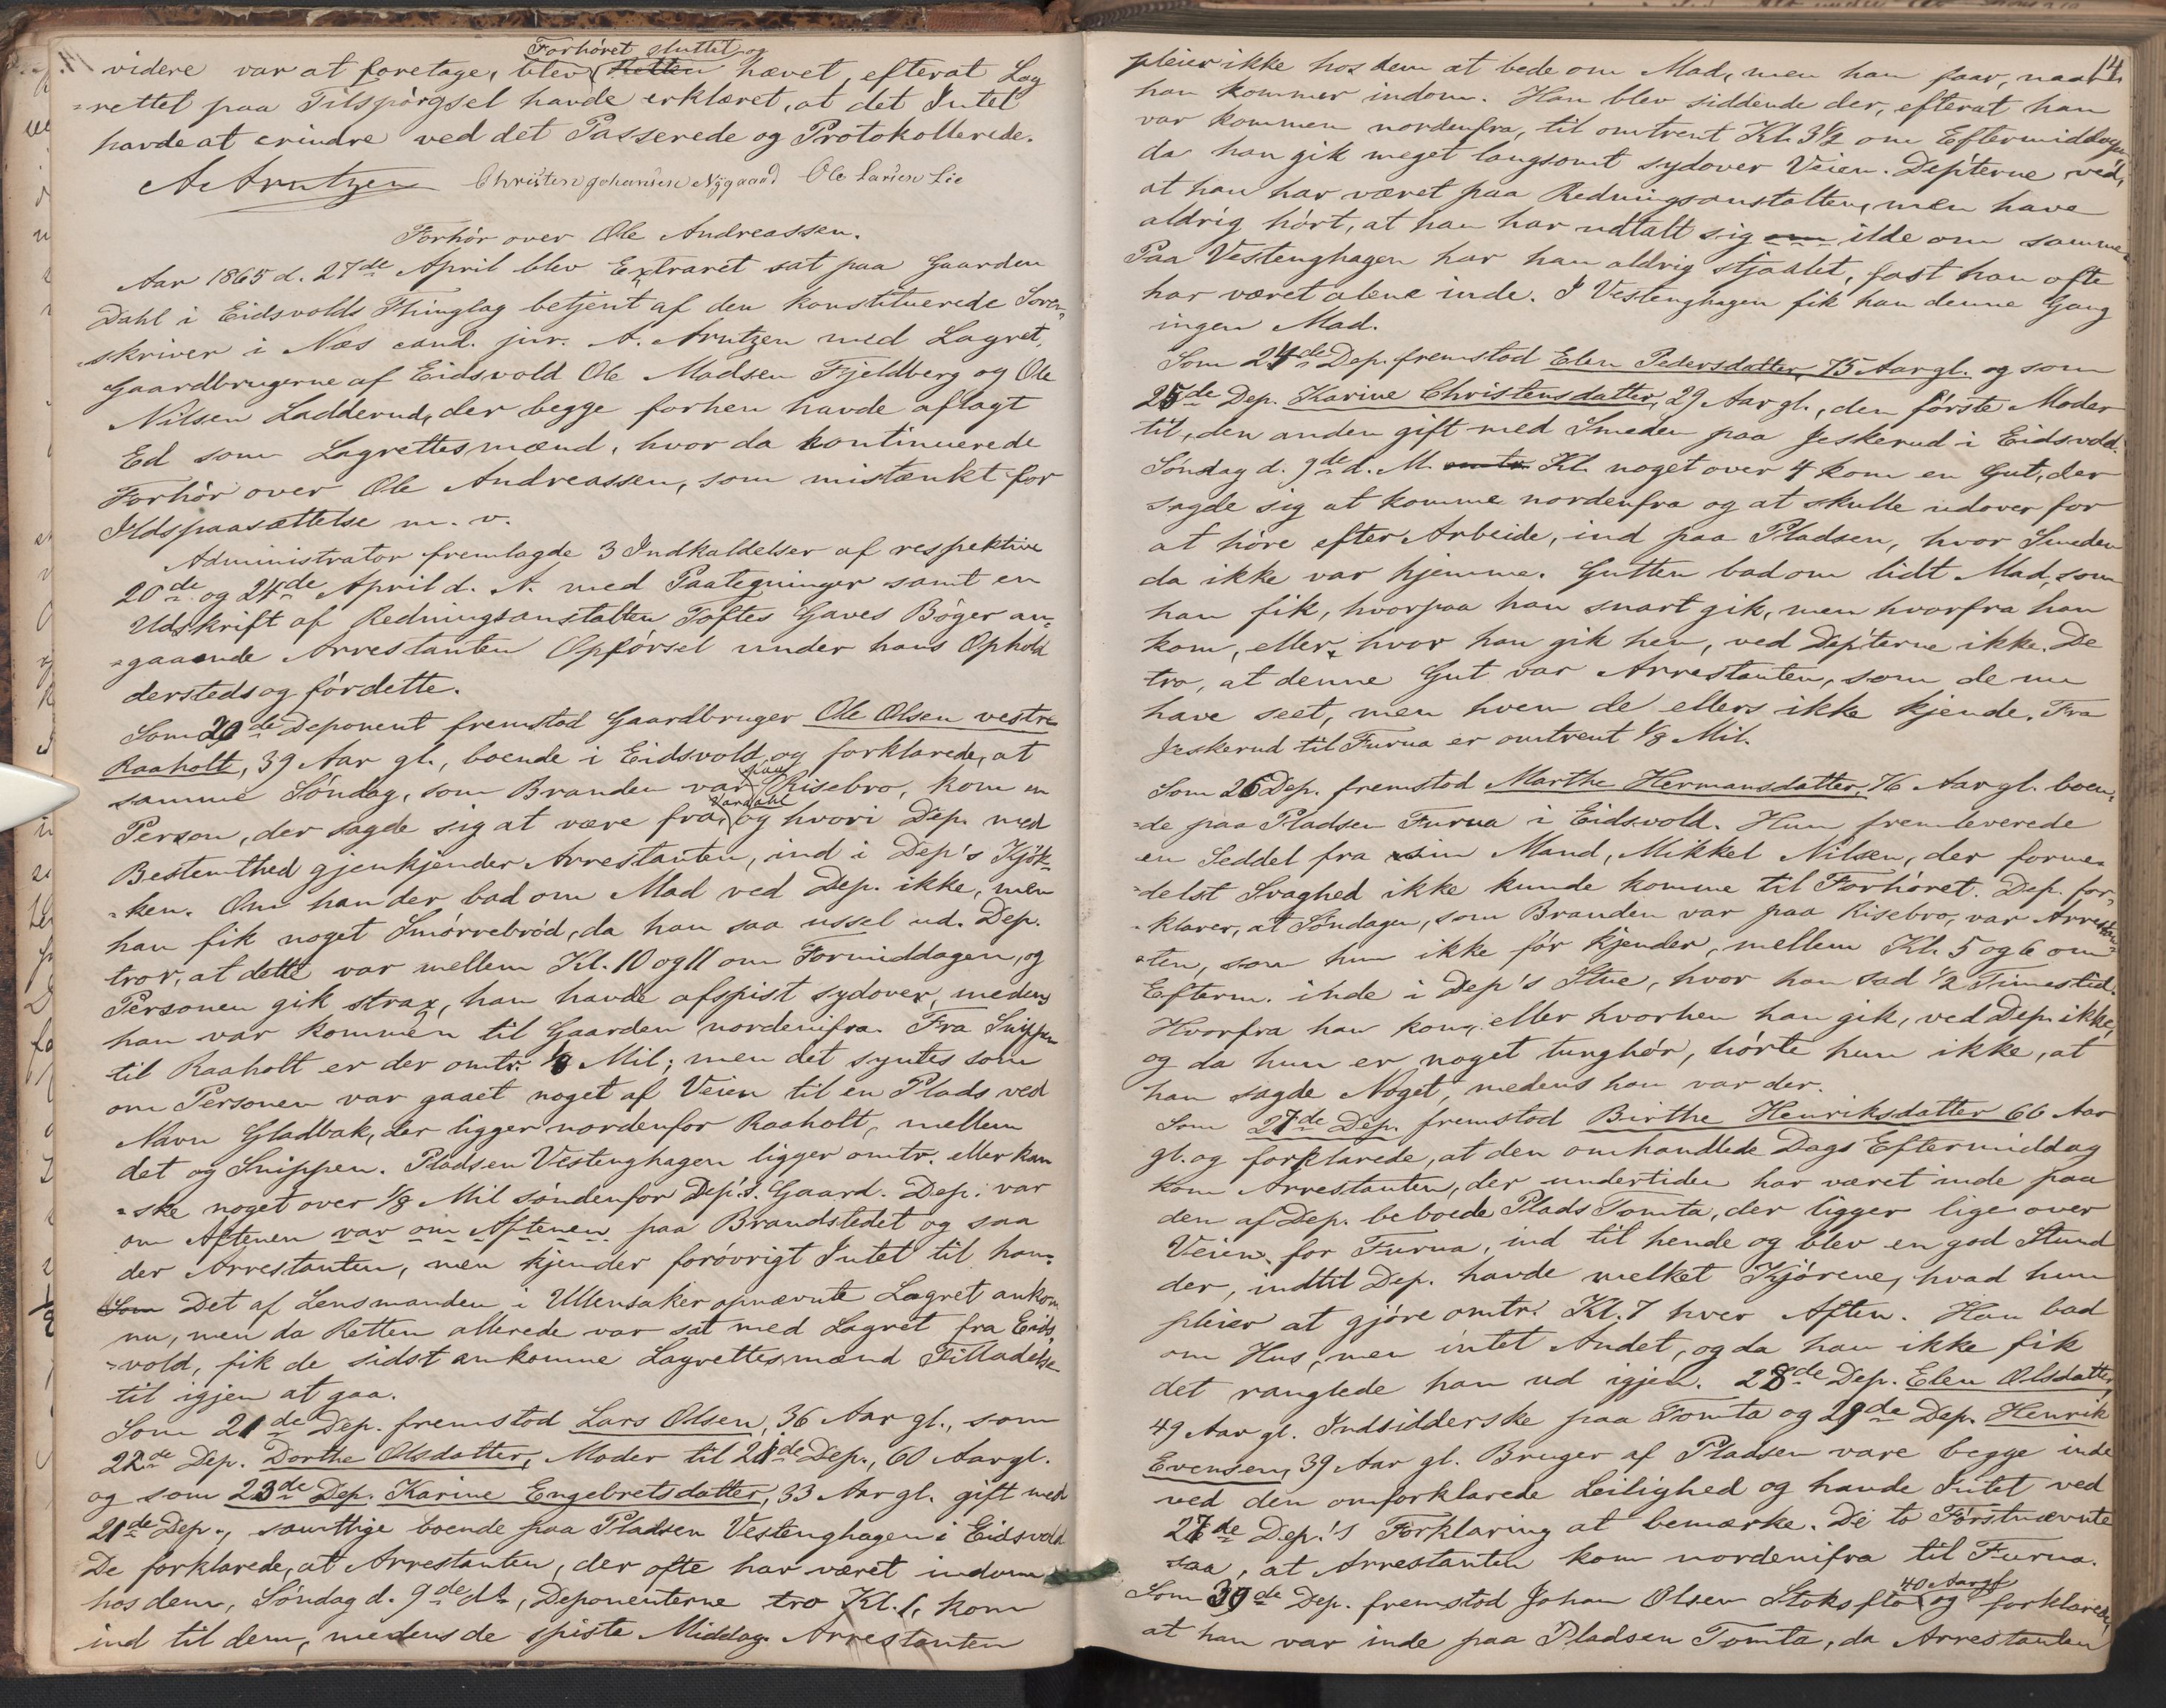 videre var at foretage, blev Forhöret sluttet og Retten hævet, efterat Lag
rettet paa Tilspörgsel havde erklæret, at det Intet
havde at erindre ved det Passerede og Protokollerede.
A. Arntzen Christen Johansen Nÿgaard Ole Larsen Lie
Forhör over Ole Andreassen.
Aar 1865 d. 27de April blev Extraret sat paa Gaarden
Dahl i Eidsvolds Thinglag betjent af den konstituerede Soren-
skriver i Næs cand. jur. A. Arntzen med Lagret,
Gaardbrugerne af Eidsvold Ole Madsen Fjeldberg og Ole
Nilsen Ladderud, der begge forhen havde aflagt
Ed som Lagrettesmænd, hvor da kontinuerede
Forhör over Ole Andreassen, som mistænkt for
Ildspaasættelse m. v.
Administrator fremlagde 3 Indkaldelser af respektive
20de og 24de April d. A. med Paategninger samt en
Udskrift af Redningsanstalten Toftes Gaves Böger an-
gaaende Arrestanten Opförsel under hans Ophold
dersteds og för dette.
Som 20de Deponent fremstod Gaardbruger Ole Olsen vestre
Raaholt, 39 Aar gl., boende i Eidsvold og forklarede, at
samme Söndag, som Branden var paa Risebro, kom en
Person, der sagde sig at være fra Vardahl og hvori Dep. med
Bestemthed gjenkjender Arrestanten, ind i Dep's Kjök-
ken. Om han der bad om Mad ved Dep. ikke, men
han fik noget Smörrebröd, da han saa ussel ud. Dep.
tror, at dette var mellem Kl. 10 og 11 om Formiddagen, og
Personen gik strax, han havde afspist sydover, medens
han var kommen til Gaarden nordenifra. Fra Snippen
til Raaholt er der omtr. 1/8 Mil; men det syntes som
om Personen var gaaet noget af Veien til en Plads ved
Navn Gladbak, der ligger nordenfor Raaholt, mellem
det og Snippen. Pladsen Vestenghagen ligger omtr. eller kan
ske noget over 1/8 Mil söndenfor Dep.'s Gaard. Dep. var
om Aftenen var om Aftenen paa Brandstedet og saa
der Arrestanten, men kjender forövrigt Intet til ham.
Som Det af Lensmanden i Ullensaker opnævnte Lagret ankom
nu, men da Retten allerede var sat med Lagret fra Eids
vold, fik de sidst ankomne Lagrettesmænd Tilladelse
til igjen at gaa.
Som 21de Dep. fremstod Lars Olsen, 36 Aar gl., som
22de Dep. Dorthe Olsdatter, Moder til 21de Dep., 60 Aar gl.
og som 23de Dep. Karine Engebretsdatter, 33 Aar gl. gift med
21de Dep., samtlige boende paa Pladsen Vestenghagen i Eidsvold
De forklarede, at Arrestanten, der ofte har været indom
hos dem, Söndag d. 9de ds, Deponenterne tro Kl. 1, kom
ind til dem, medens de spiste Middag. Arrestanten
14.
pleier ikke hos dem at bede om Mad, men han faar, naar
han kommer indom. Han blev siddende der, efterat han
var kommen nordenfra, til omtrent Kl. 3½ om Eftermiddagen
da han gik meget langsomt sydover Veien. Dep'terne ved,
at han har været paa Redningsanstalten, men have
aldrig hört, at han har udtalt sig om ilde om samme.
Paa Vestenghagen har han aldrig stjaalet, fast han ofte
har været alene inde. I Vestenghagen fik han denne Gang
ingen Mad.
Som 24de Dep. fremstod Elen Pedersdatter, 75 Aar gl. og som
25de Dep. Karine Christensdatter, 29 Aar gl., den förste Moder
til, den anden gift med Smeden paa Jeskerud i Eidsvold.
Söndag d. 9de d. M. omtr. Kl. noget over 4 kom en Gut, der
sagde sig at komme nordenfra og at skulle udover for
at höre efter Arbeide, ind paa Pladsen, hvor Smeden
da ikke var hjemme. Gutten bad om lidt Mad, som
han fik, hvorpaa han snart gik, men hvorfra han
kom, eller hvor han gik hen, ved Dep'terne ikke. De
tro, at denne Gut var Arrestanten, som de nu
have seet, men hvem de ellers ikke kjende. Fra
Jeskerud til Furua er omtrent 1/8 Mil.
Som 26 Dep. fremstod Marthe Hermansdatter, 76 Aar gl. boen-
de paa Pladsen Furua i Eidsvold. Hun fremleverede
en Seddel fra sin Mand, Mikkel Nilsen, der forme-
delst Svaghed ikke kunde komme til Forhöret. Dep. for-
klarer, at Söndagen, som Branden var paa Risebro, var Arrestan-
ten, som hun ikke för kjender, mellem Kl. 5 og 6 om
Efterm. inde i Dep's Stue, hvor han sad ½ Timestid.
Hvorfra han kom, eller hvorhen han gik, ved Dep. ikke,
og da hun er noget tunghör, hörte hun ikke, at
han sagde Noget, medens han var der.
Som 27de Dep. fremstod Birthe Henriksdatter 66 Aar
gl. og forklarede, at den omhandlede Dags Eftermiddag
kom Arrestanten, der undertiden har været inde paa
den af Dep. beboede Plads Tomta, der ligger lige over
Veien for Furua, ind til hende og blev en god Stund
der, indtil Dep. havde melket Kjörene, hvad hun
pleier at gjöre omtr. Kl. 7 hver Aften. Han bad
om Hus, men intet Andet, og da han ikke fik
det ranglede han ud igjen. 28de Dep. Elen Olsdatter,
49 Aar gl. Indsidderske paa Tomta og 29de Dep. Henrik
Evensen, 39 Aar gl. Bruger af Pladsen vare begge inde
ved den omforklarede Leilighed og havde Intet ved
27de Dep.'s Forklaring at bemærke. De to Förstnævnte
saa, at Arrestanten kom nordenifra til Furua.
Som 30de Dep. fremstod Johan Olsen Stoksflot 40 Aar gl. og forklarede,
at han var inde paa Pladsen Tomta, da Arrestanten